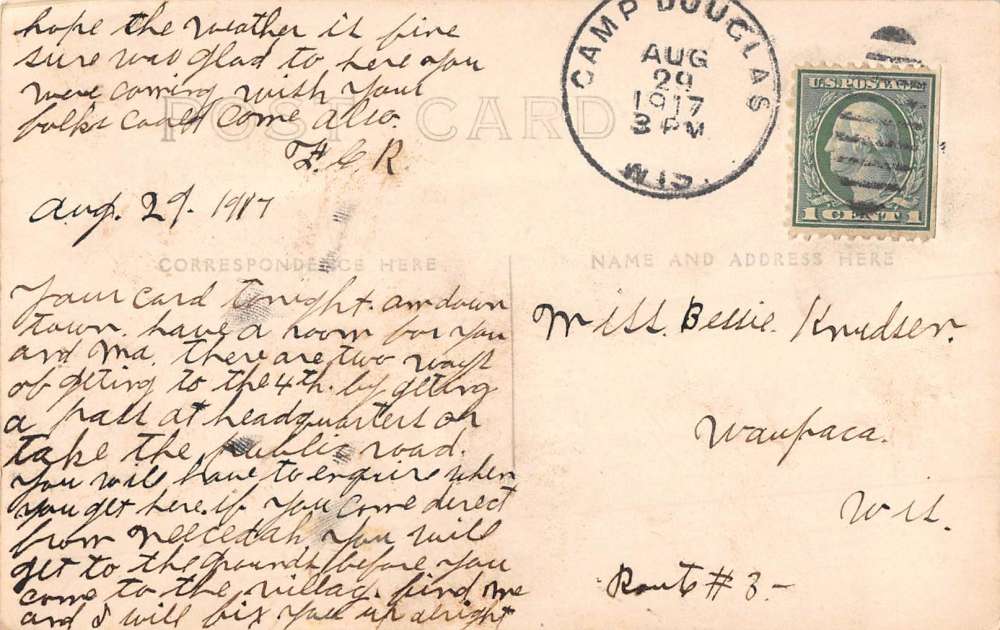 Aug. 29. 1917
Your card tonight. am down
town. have a room for you
and Ma. there are two ways
of geting to the 4th. by geting
a pass at headquarters or
take the public road.
you will have to enquire when
you get here. if you come direct
from Necedah you will
get to the grounds before you
come to the villag. find me
and I will fix you up alright
hope the weather is fine
sure was glad to here you
were coming wish your
folks could come also.
CAMP DOUGLAS
AUG
29
1917
3 PM
WIS.
U.S. POSTAGE
1 CENT 1
POST CARD
CORRESPONDENCE HERE
NAME AND ADDRESS HERE
Miss. Bessie. Knudsen.
Waupaca.
Wis.
Route # 3 -